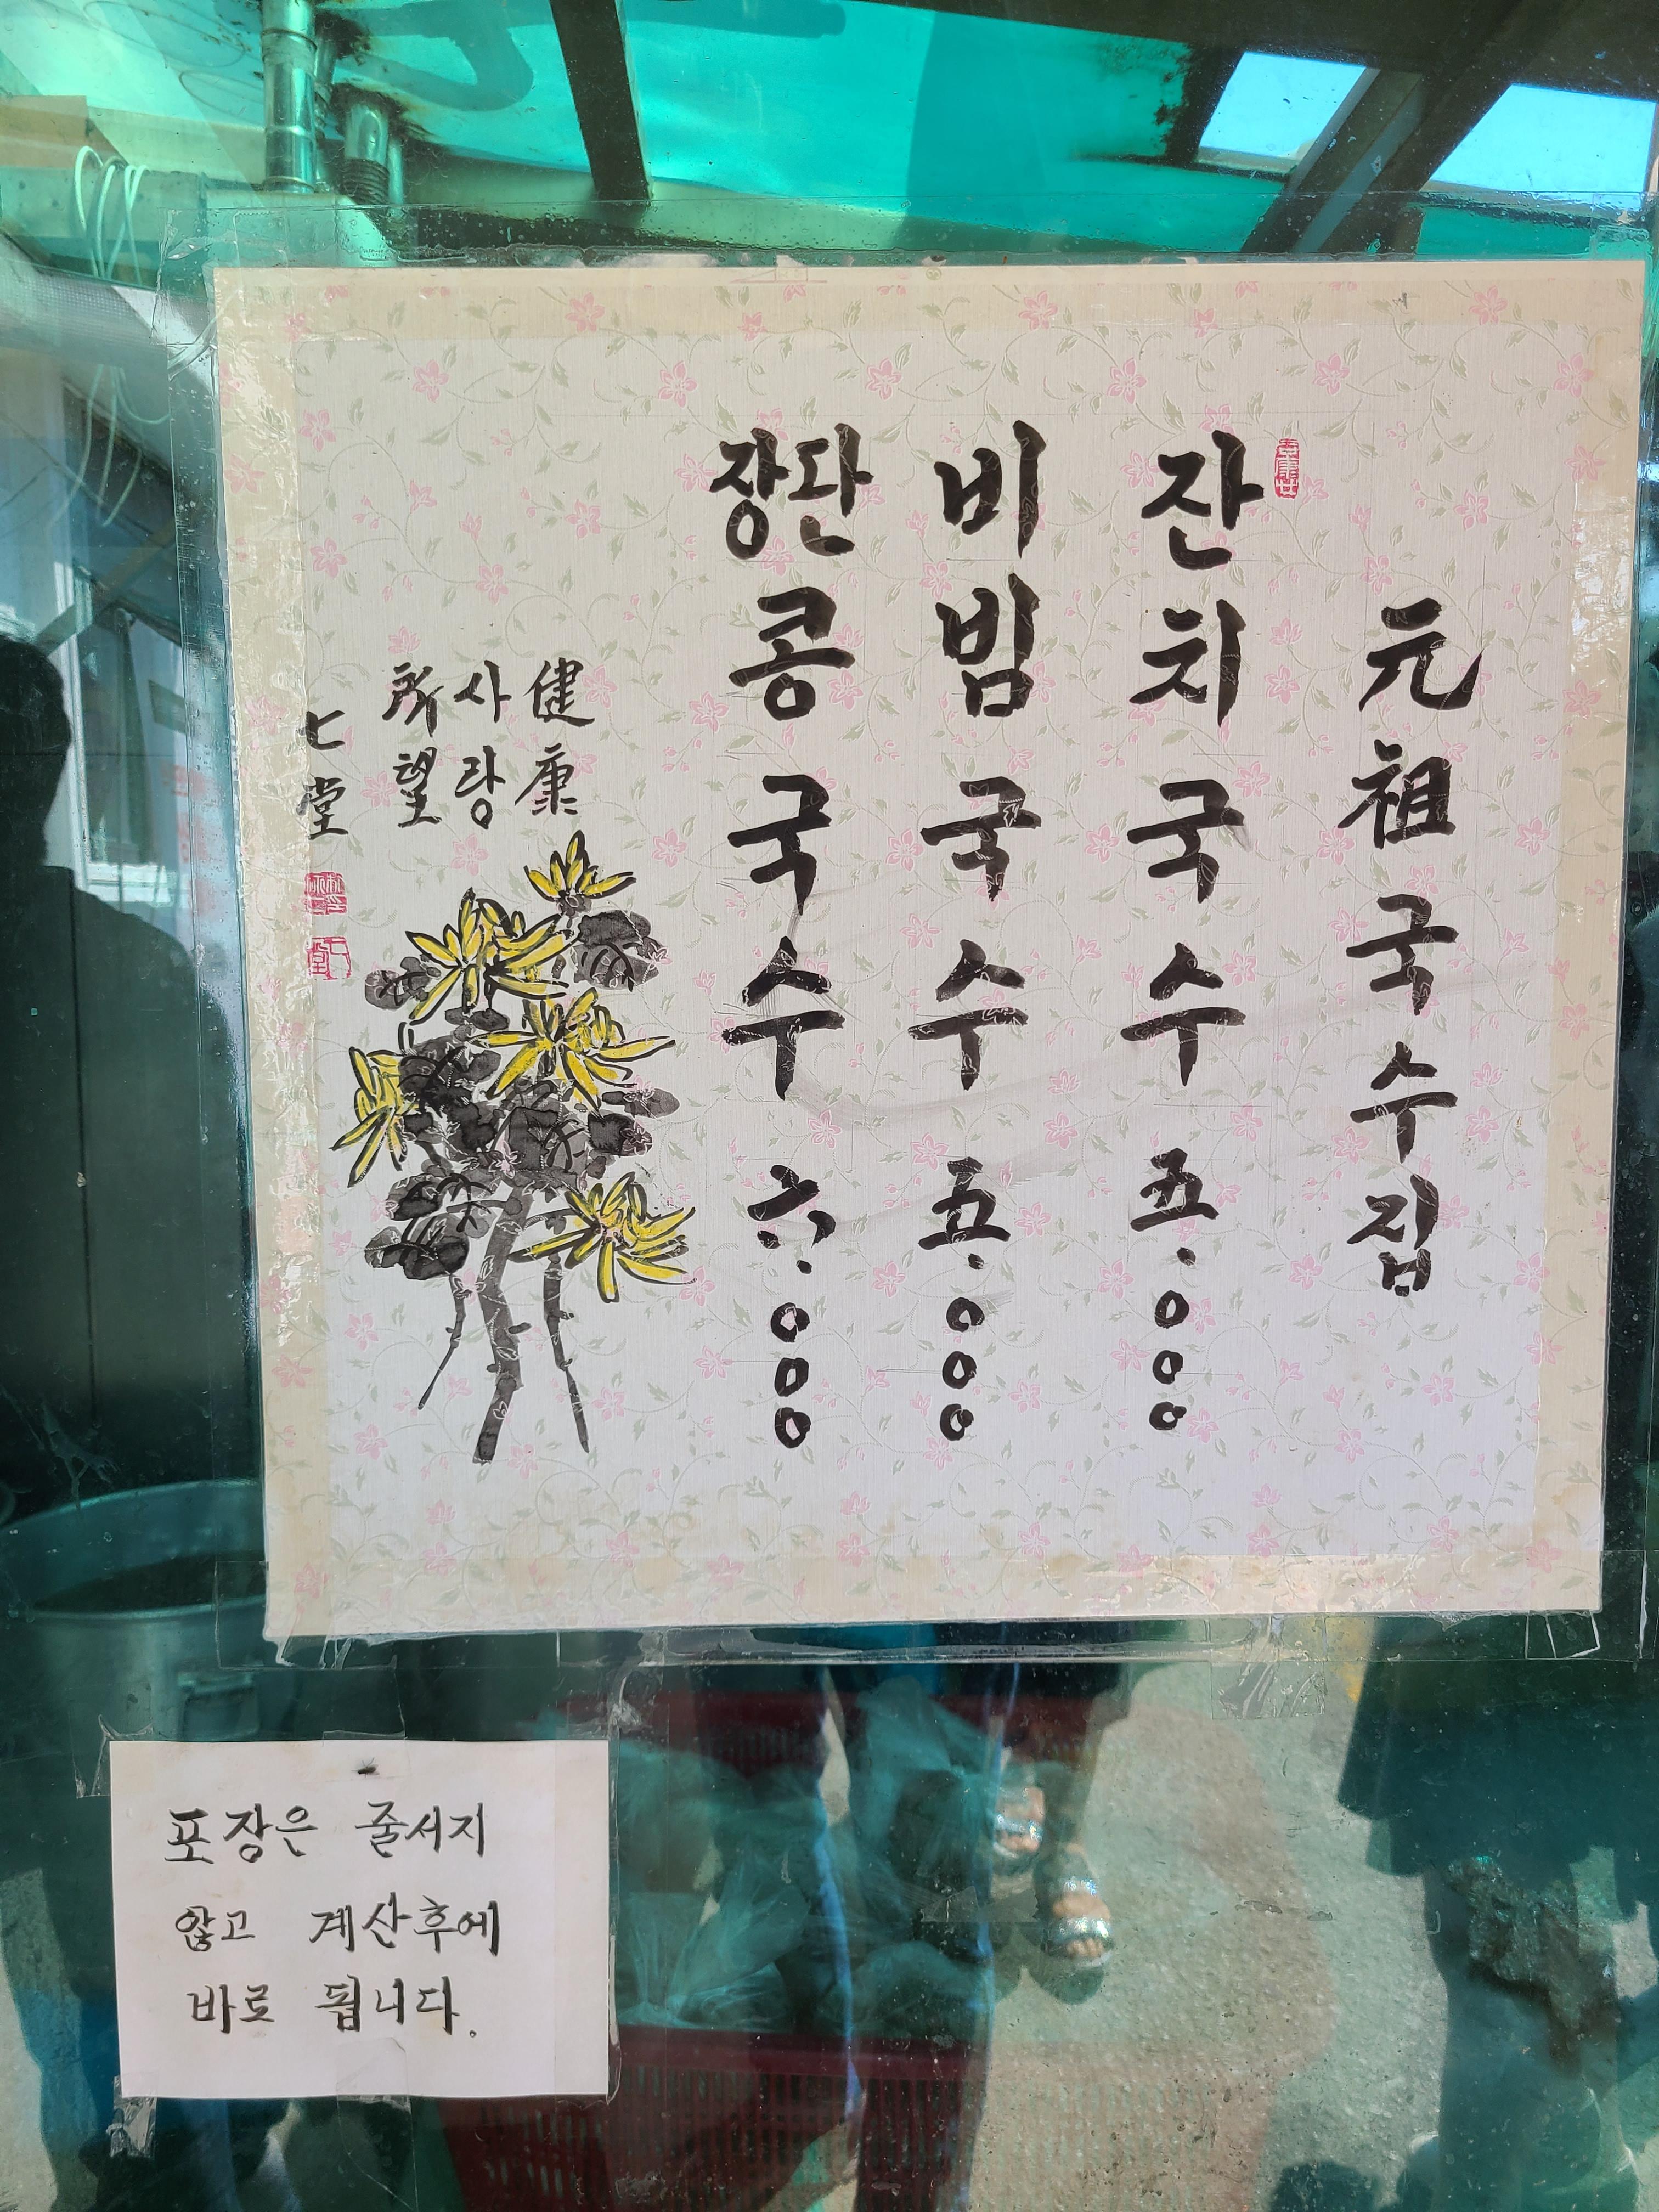 元祖국수집
잔치국수 五.000
비빔국수 五.000
장단콩국수 六.000
健康
사랑
所望
七堂
포장은 줄서지
않고 계산후에
바로 됩니다.